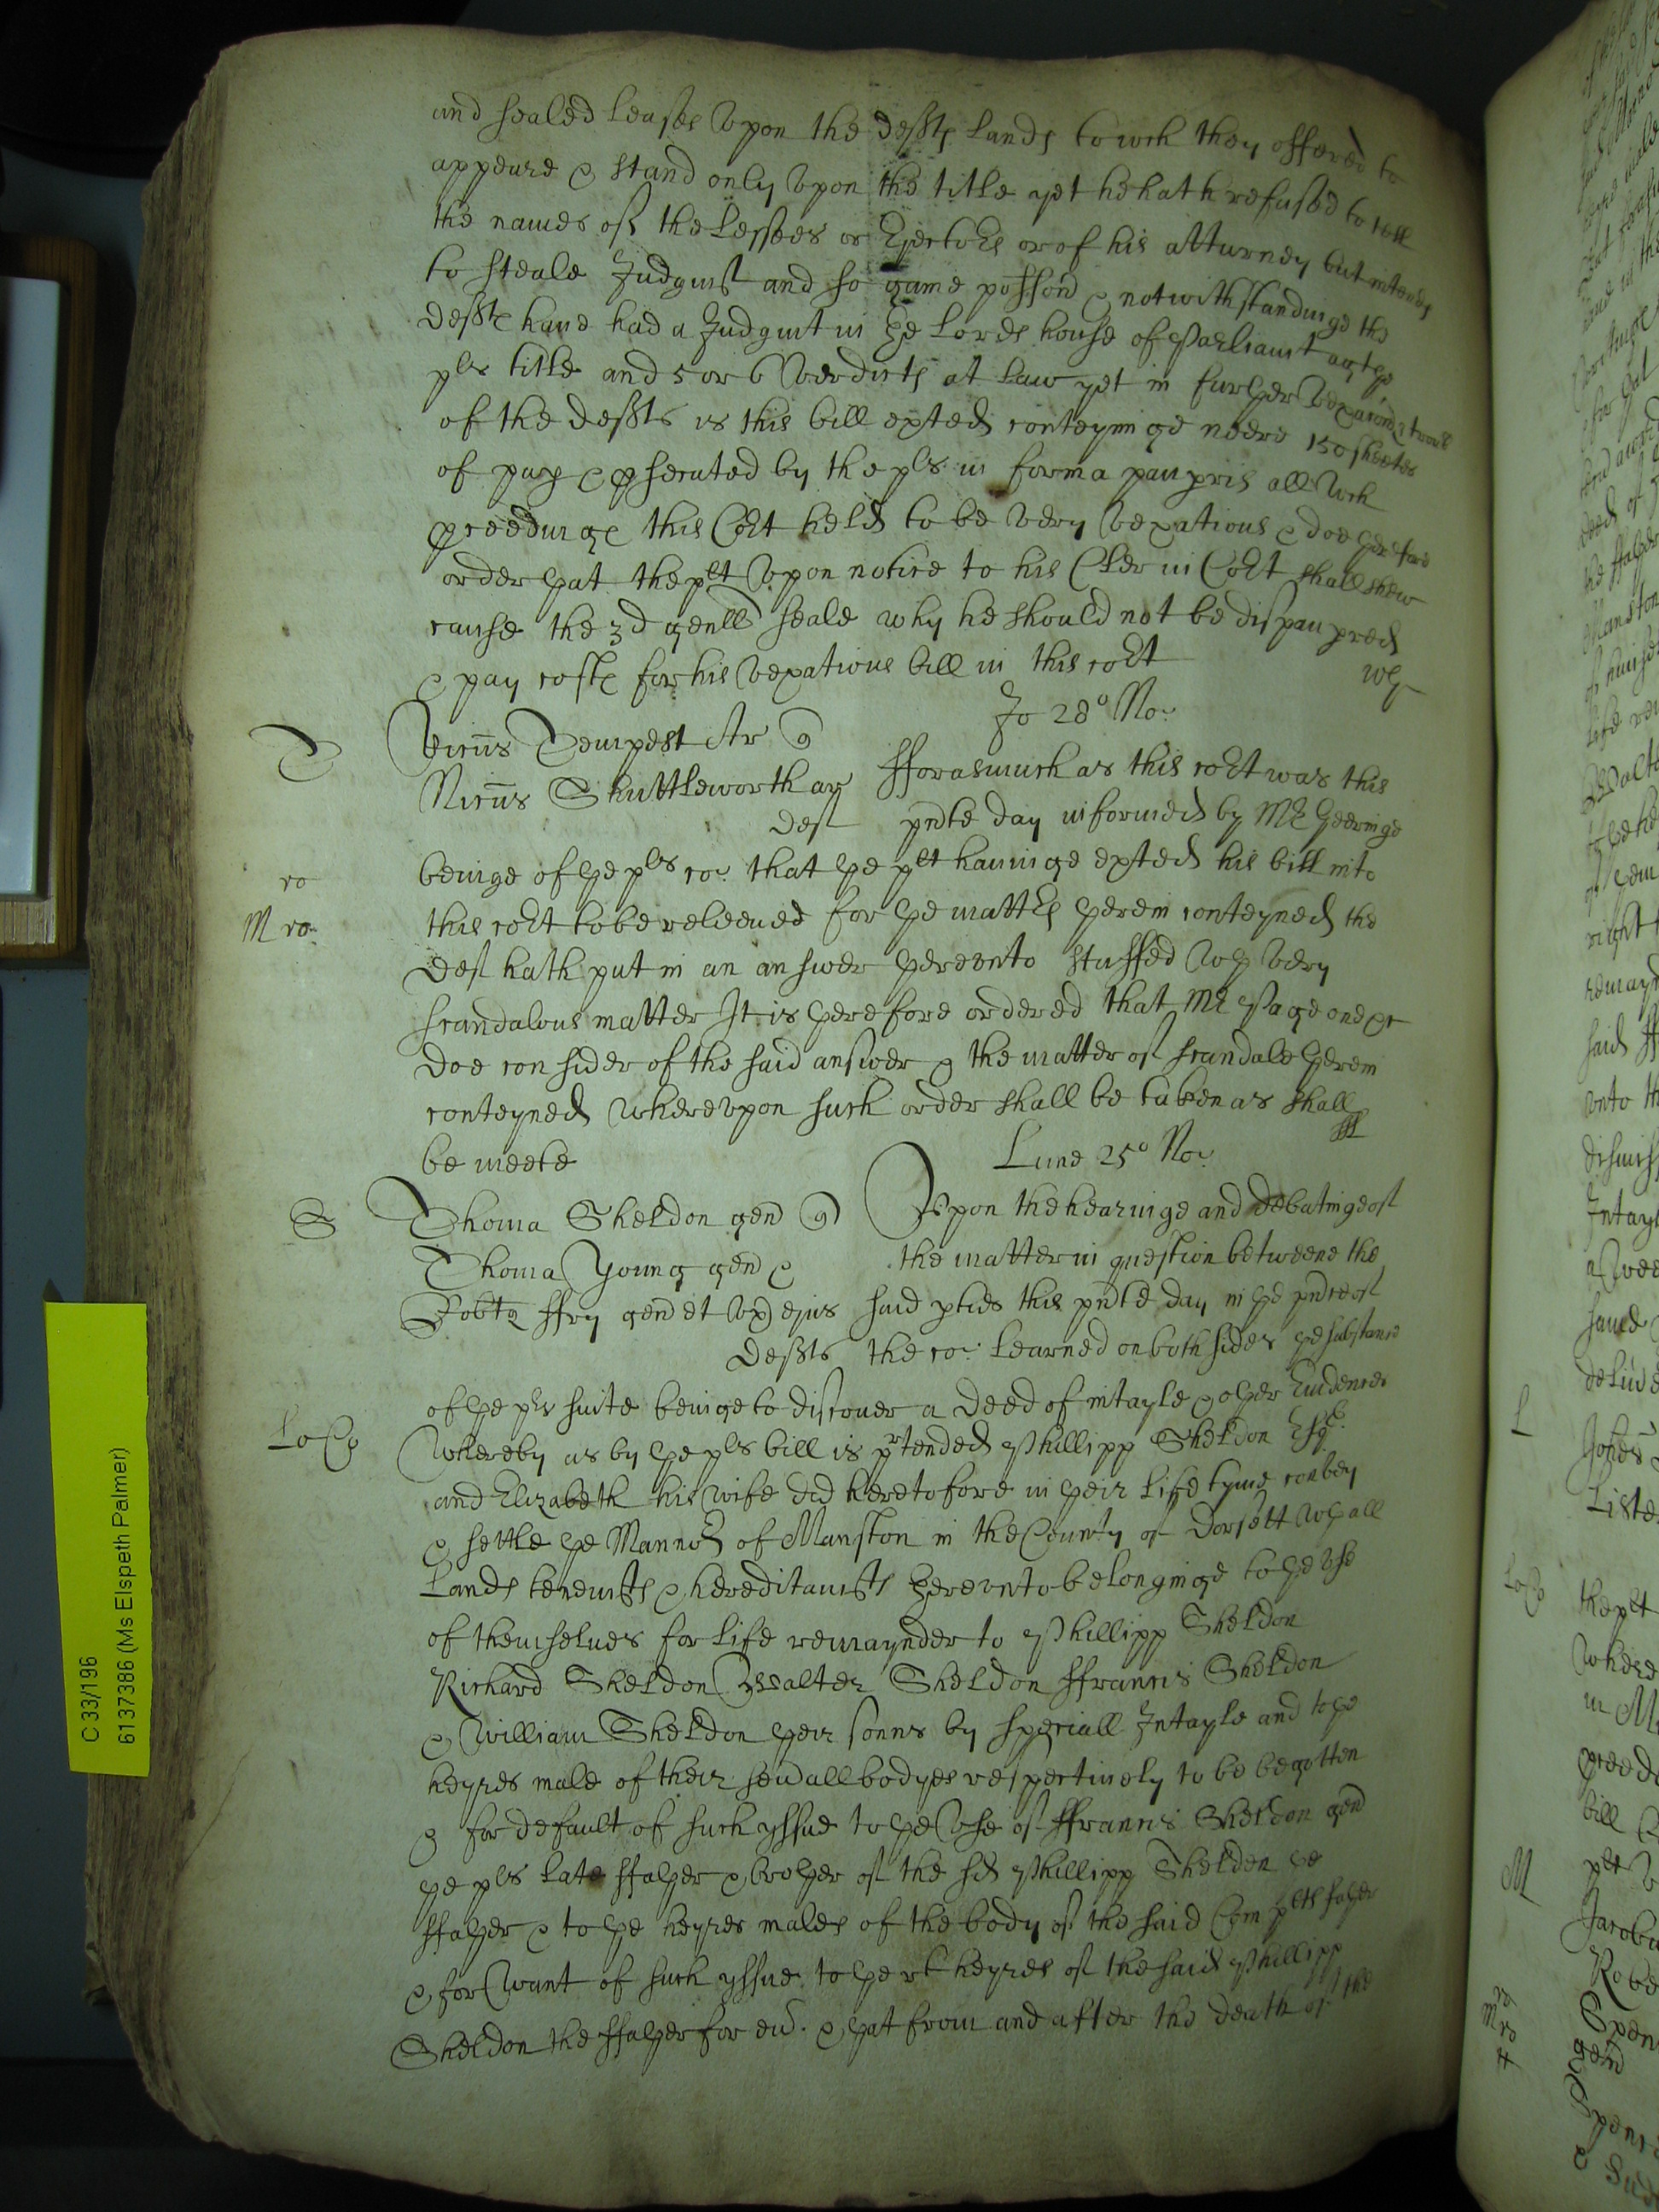 and sealed leases vpon the defts lands to wch they offered to
appeare & stand only vpon the title yet he hath refused to tell
the names of the Lessees or Eiectors or of his atturney but intends
to steale Judgmt and so game possion & notwithstandinge the
defts haue had a Judgmt in ye lords house of Parliamt agt ye
pls title and 5 or 6 verdicts at law yet in further vexacon & troub
of the defts is this bill exted conteyninge neere 150 sheetes
of pap & psecuted by the pls in forma pauperis all wch
pceedinge this Cort held to be very vexatious & doe yerfore
order yat the plt vpon notice to his Cler in Cort shall shew
cause the 3d genll seale why he should not be dispaupred
& pay coste for his vexatious bill in this cort
Jo 28o No:
T
Ricus Tempest Ar q
Nicus Shuttleworth ar
deft
fforasmuch as this cort was this
pnte day informed by Mr Geeringe
beinge of ye pls co: that ye plt hauinge exted his bill into
ro
this cort to be releeued for ye matters yerein conteyned the
M ro
deft hath put in an answer yerevnto stuffed wth very
scandalous matter It is yerefore ordered that Mr Page one &c
doe consider of the said answer & the matter of scandale yerein
conteyned wherevpon such order shall be taken as shall
be meete
Lune 25o No:
S
Thoma Sheldon gen q
Thoma Young gen &
Robto ffry gen et vx eius
defts
Vpon the hearinge and debatinge of
the matter in question betweene the
said pties this pnte day in ye pnce of
the co: learned on both sides ye substance
of ye pls suite beinge to discouer a deed of intayle & oyer Euidences
Lo Co
whereby as by ye pls bill is prtended Phillipp Sheldon Esqr
and Elizabeth his wife did heretofore in yeir life tyme convey
& settle ye Mannor of Manston in the County of Dorsett wth all
lands tenemts & hereditamts yerevnto belonginge to ye vse
of themselues for life remaynder to Phillipp Sheldon
Richard Sheldon Walter Sheldon ffrancis Sheldon
& William Sheldon yeir sonns by speciall Intayle and to ye
heyres male of their seuall bodyes respectiuely to be begotten
& for default of such yssue to ye vse of ffrancis Sheldon gen
ye pls late ffayer & broyer of the sd Phillipp Sheldon ye
ffayer & to ye heyres males of the body of the said Com plts fayer
& for want of such yssue to ye rt heyres of the said Phillipp
Sheldon the ffayer for eu. & yat from and after the death of the
C 33/196
6137386 (Ms Elspeth Palmer)